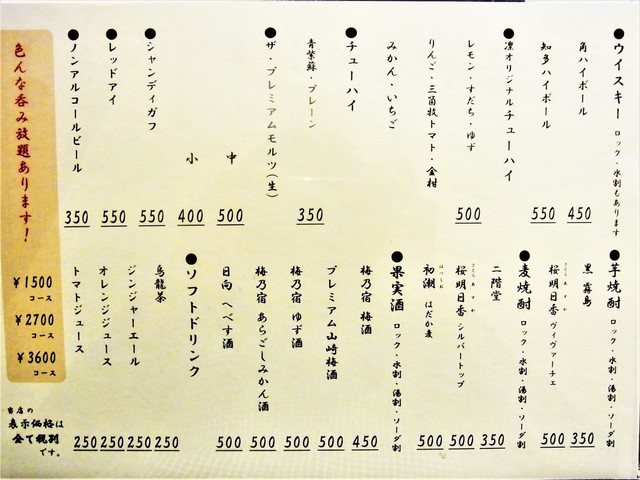 ●ウイスキー ロック・水割もあります
角ハイボール 450
知多ハイボール 550
●凛オリジナルチューハイ
レモン・すだち・ゆず 500
りんご・三箇牧トマト・金柑
みかん・いちご
●チューハイ
青紫蘇・プレーン 350
●ザ・プレミアムモルツ(生)
中 500
小 400
●シャンディガフ 550
●レッドアイ 550
●ノンアルコールビール 350
●芋焼酎 ロック・水割・湯割・ソーダ割
黒霧島 350
桜明日香 ヴィヴァーチェ 500
●麦焼酎 ロック・水割・湯割・ソーダ割
二階堂 350
桜明日香 シルバートップ 500
初潮 はだか麦 500
●果実酒 ロック・水割・湯割・ソーダ割
梅乃宿 梅酒 450
プレミアム山崎梅酒 500
梅乃宿 ゆず酒 500
梅乃宿 あらごしみかん酒 500
日向 へべす酒 500
●ソフトドリンク
烏龍茶 250
ジンジャーエール 250
オレンジジュース 250
トマトジュース 250
色んな呑み放題あります!
¥1500コース
¥2700コース
¥3600コース
当店の
表示価格は
全て税別
です。